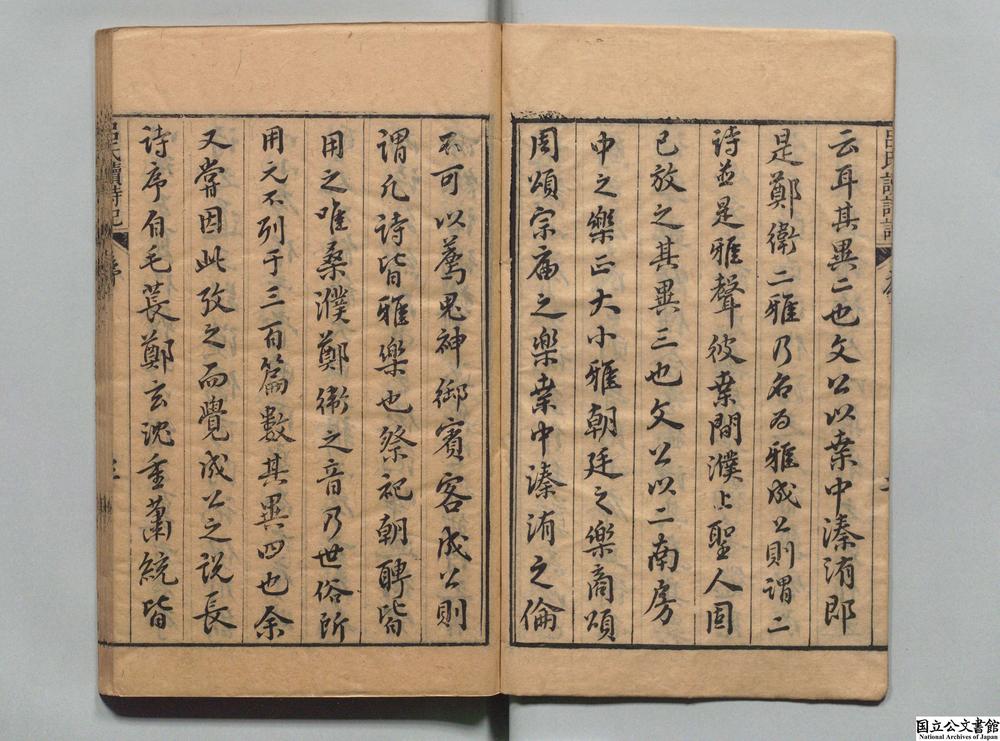 云耳其異二也文公以桒中溱洧郎
是鄭衛二雅乃名为雅成公則謂二
詩並是雅聲彼桒間濮上聖人固
已放之其異三也文公以二南房
中之樂正大小雅朝廷之樂商頌
周頌宗庙之樂桒中溱洧之倫
不可以薦鬼神御賓客成公則
謂凡詩皆雅樂也祭祀朝聘皆
用之唯桑濮鄭衛之音乃世俗所
用元不列于三百篇數其異四也余
又嘗因此攷之而覺成公之説長
詩序自毛萇鄭玄沈重蕭統皆
呂氏讀詩記
序
三
国立公文書館
National Archives of Japan